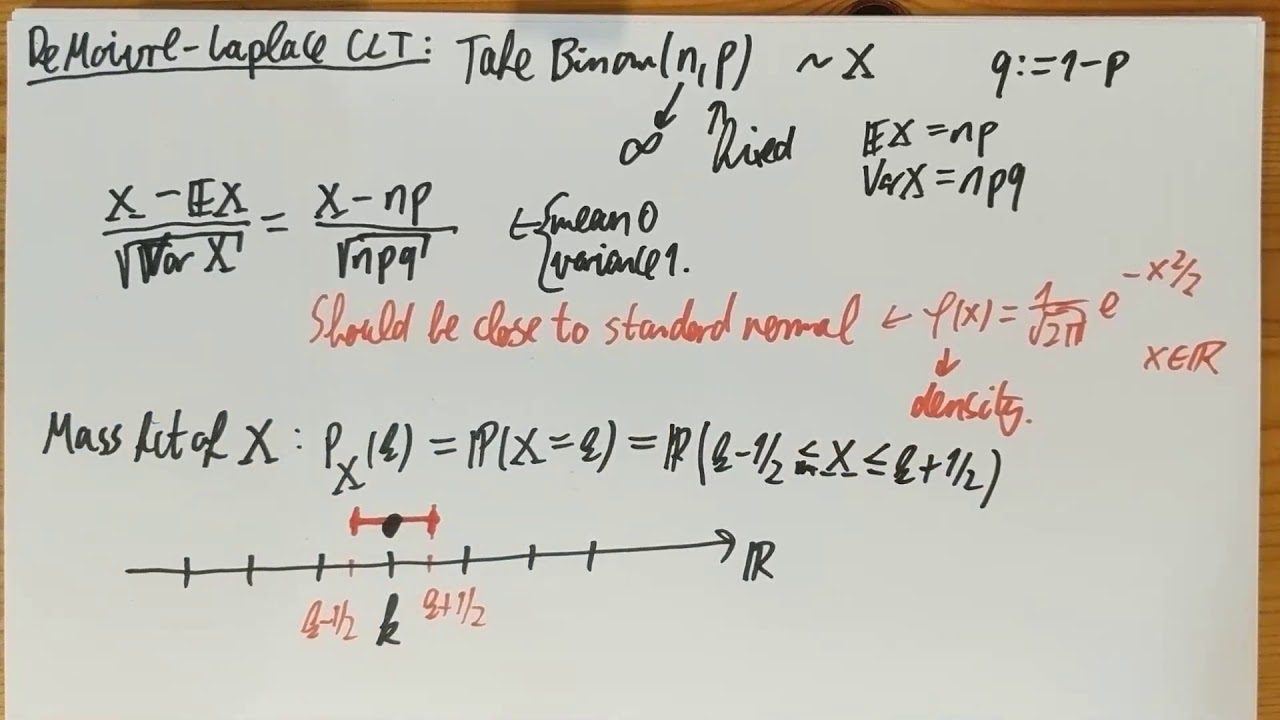 DeMoivre-Laplace CLT: Take Binom(n,p) ~ X q:=1-p
∞ fixed
𝔼X = np
Var X = npq
(X - 𝔼X)/√(Var X) = (X - np)/√(npq) ← { mean 0
variance 1.
Should be close to standard normal ← φ(x) = 1/√(2π) e^(-x²/2)
x∈ℝ
density.
Mass fct of X: P_X(k) = ℙ(X=k) = ℙ(k-1/2 ≤ X ≤ k+1/2)
ℝ
k-1/2 k k+1/2